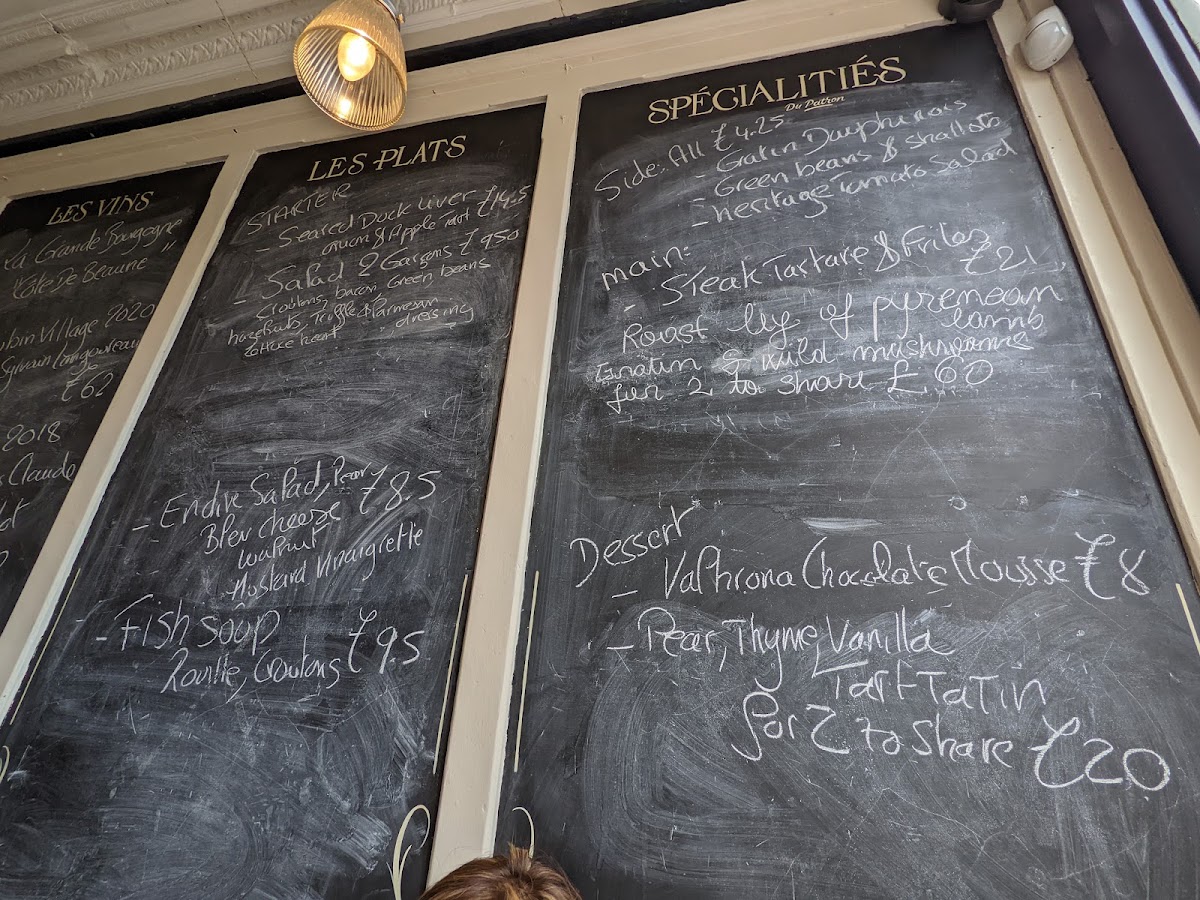 LES VINS
La Grande Bourgogne
Côte De Beaune "
ubin Village 2020
Sylvain
£62
2018
Claude
LES PLATS
STARTER
- Seared Duck Liver
onion & Apple Tart £14.5
- Salad 2 Garçons £950
croutons, bacon Green beans
hazelnuts, Truffle & Parmesan
dressing
- Endive Salad, Pear
Blev cheese £8.5
walnut
Mustard Vinaigrette
- Fish soup
Rouille, Croutons £9.5
SPÉCIALITIÉS
Du Patron
Side: All £4.25
- Gratin Dauphinois
Green beans & shallots
- heritage Tomato Salad
main:
- Steak Tartare & Frites
£21
Roast leg of pyrenean
lamb
Gratin & wild mushrooms
for 2 to share £60
Dessert
- Valhrona Chocolate Mousse £8
- Pear, Thyme, Vanilla
Tart Tatin
for 2 to share £20